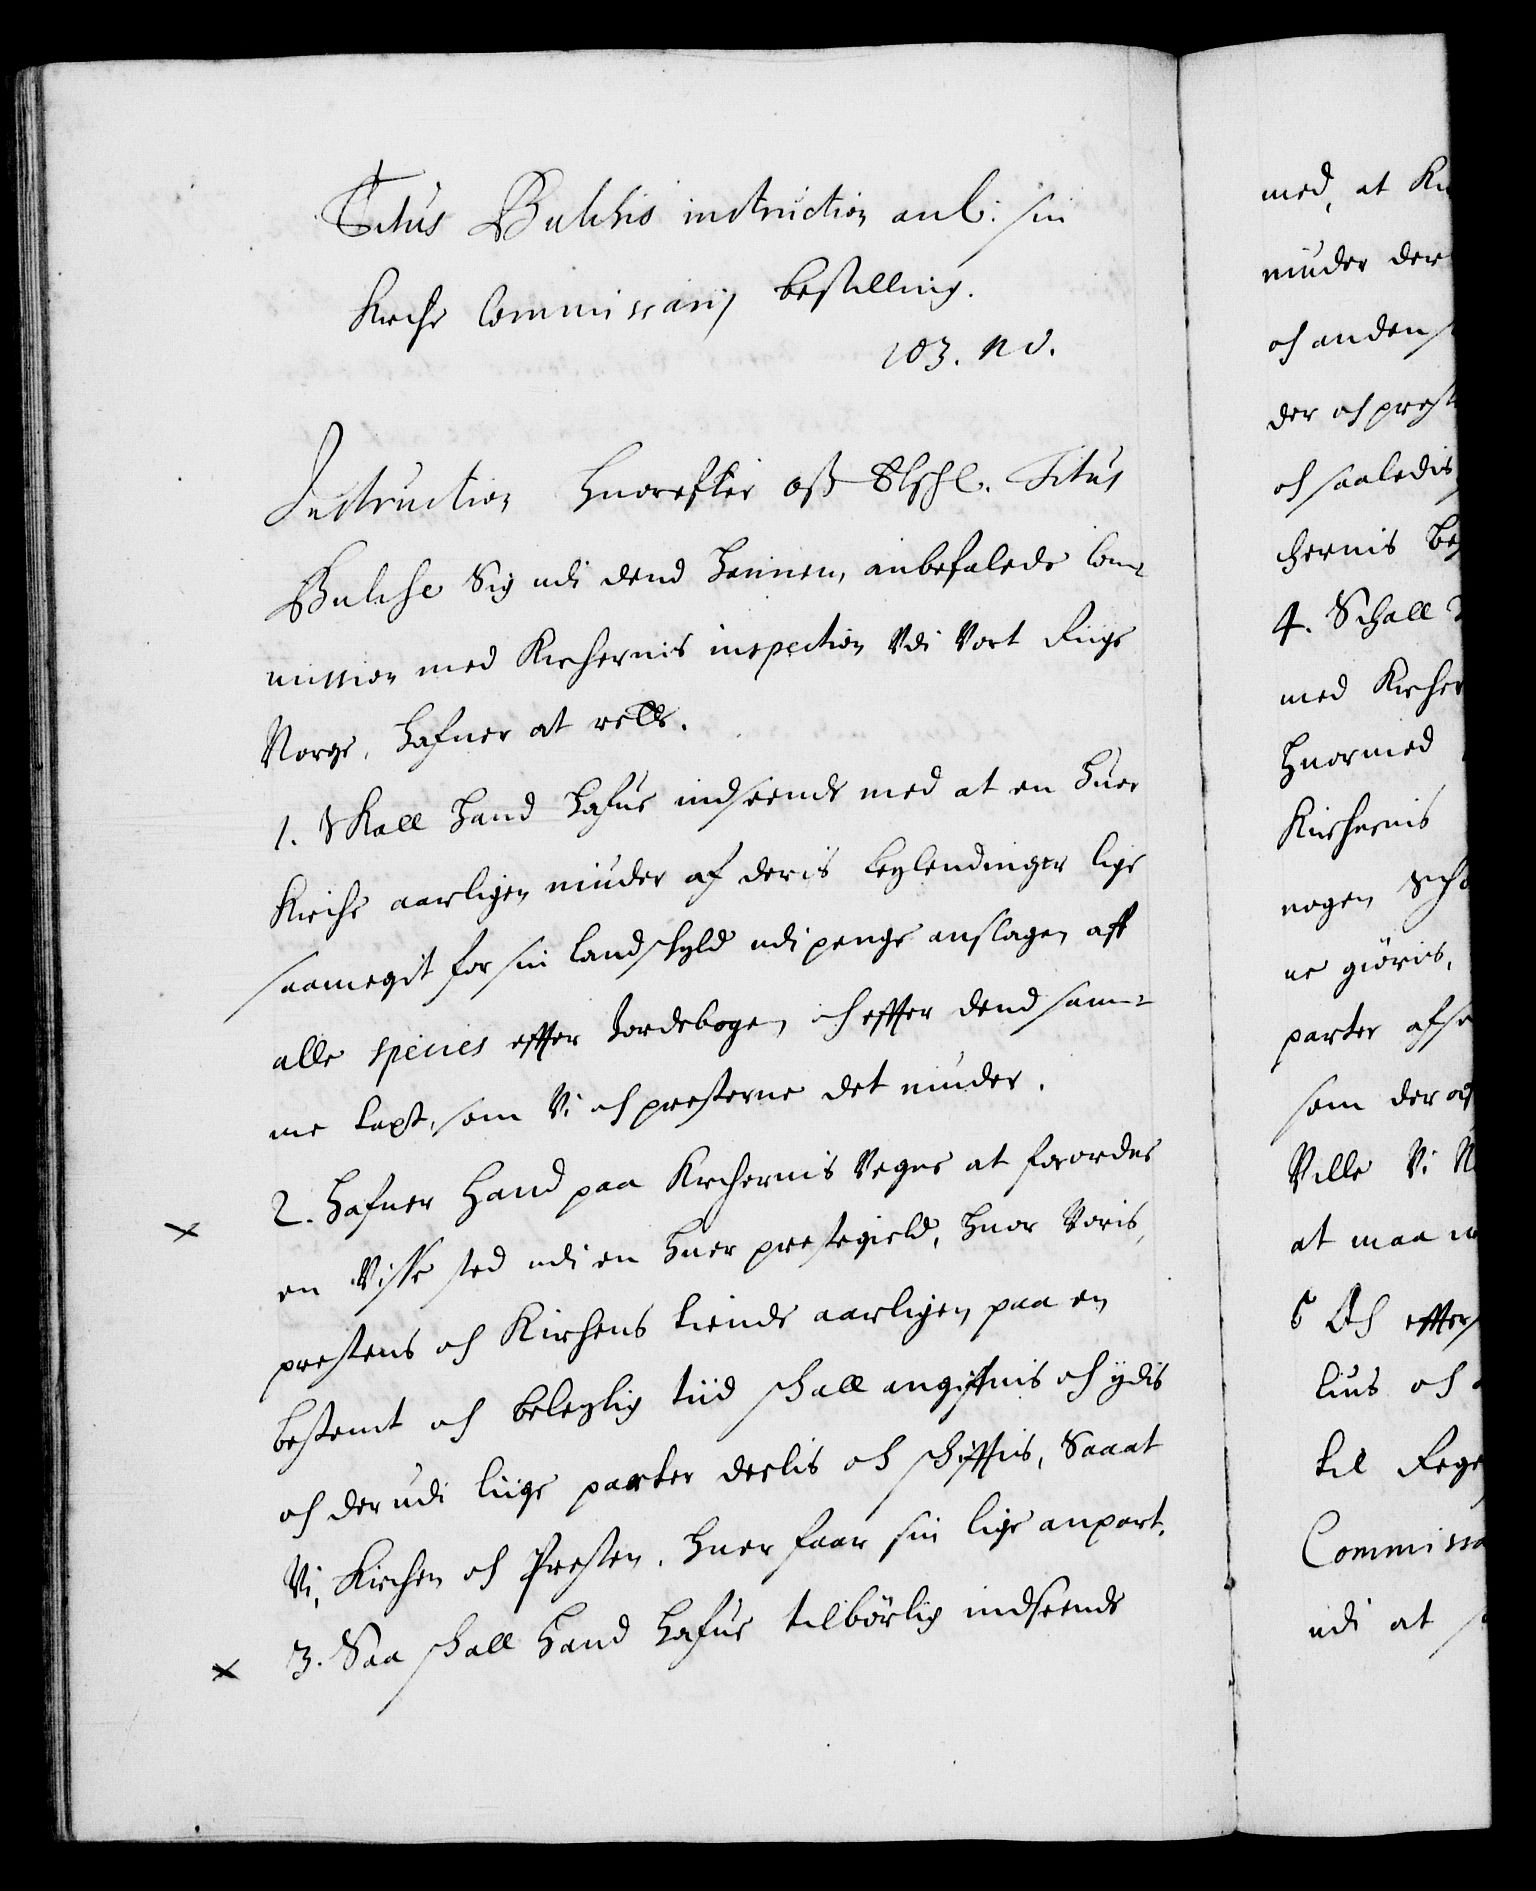 Titus Bulchis instruction anl: sin
Kirche Commissarij bestilling.
103. No.
Instruction huorefter oß Elschl. Titus
Bulche Sig udi dend hannem anbefalede Com¬
mission med Kirchernis inspection Udi Vort Riige
Norge, hafuer at rette.
1. Skall hand hafue indseende med at en huer
Kirche aarligen niuder af deris leylendinger lige
saamegit for sin landschyld udi penge anslagen aff
alle species effter Jordebogen, och effter dend sam¬
me taxt, som Vi och presterne det niuder.
2. hafuer hand paa Kirchernis Vegne at forordne
en Visse sted udi en huer prestegield, huor Voris,
prestens och Kirchens tiende aarligen paa en
bestemt och beleylig tiid schall angifftuis och ydis
och der udi liige parter deelis och schifftis, Saa at
Vi, Kirchen och Presten, huer faar sin lige anpart.
3. Saa schall hand hafue tilbörlig indseende
med, at
niuder der
och anden
der och prest
och saaledis
chernis
4. Schall
med Kircher
huormed
Kirchernis
nogen
ne giöris,
parter
som der
Ville Vi
at maa
5 Och effter
lius och
til Rege
Commissa
udi at